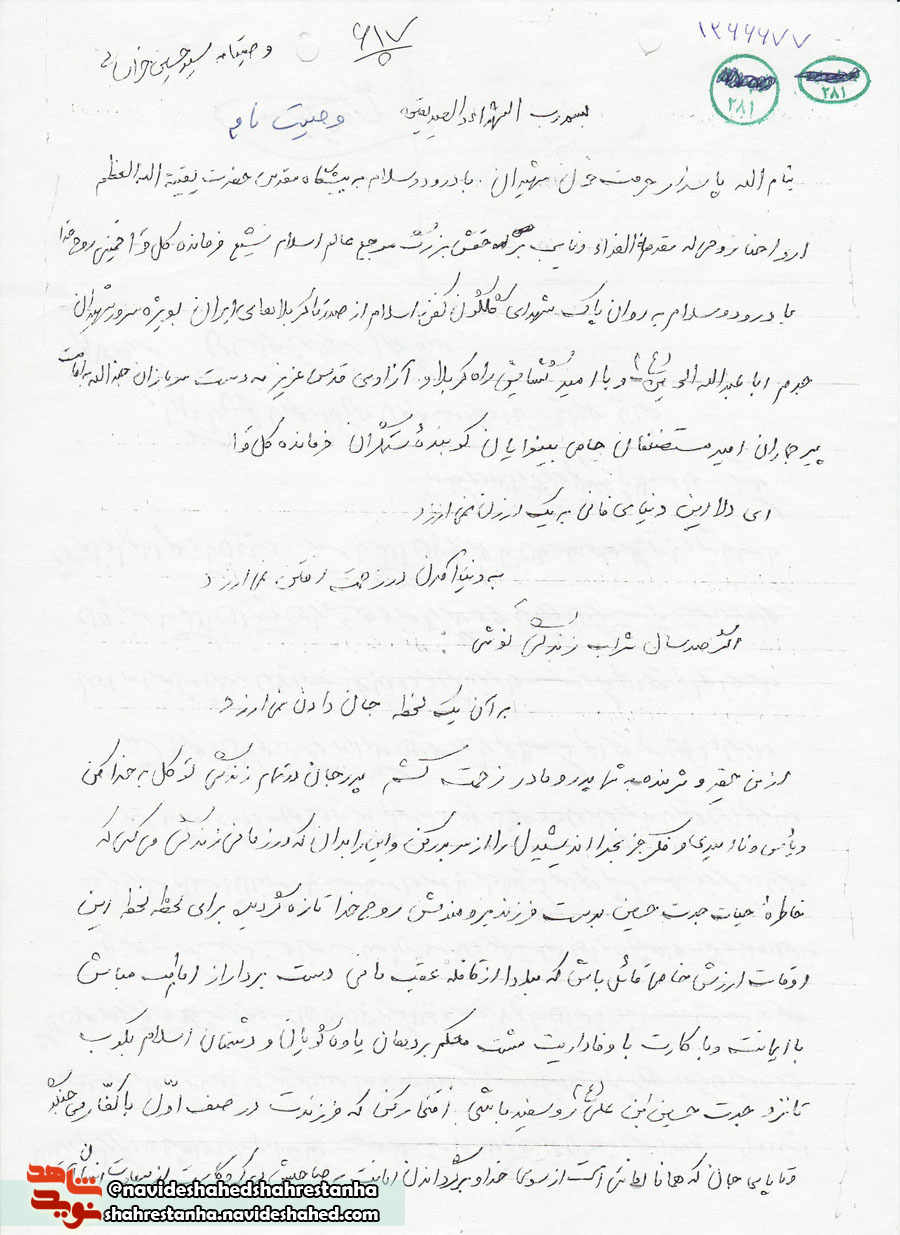 ۱۲۶۶۶۷۷
۶۱۷
وصیتنامه سید حسین
۲۸۱
۲۸۱
بسم رب الشهداء والصدیقین
وصیت نامه
بنام الله پاسدار حرمت خون شهیدان . با درود و سلام به پیشگاه مقدس حضرت بقیة الله العظم
ارواحنا و روحی له مقدمة الفداء و نایب بر حقش بزرگ مرجع عالم اسلام تشیع فرمانده کل قوا خمینی روح خدا
با درود و سلام به روان پاک شهدای گلگون کفن اسلام از صدر تا کربلاهای ایران بویژه سرور شهیدان
جدم ابا عبدالله الحسین (ع) و با امید گشایش راه کربلا و آزادی قدس عزیز به دست سربازان جندالله به امامت
پیر جماران امید مستضعفان حامی بینوایان کوبندۀ ستمگران فرمانده کل قوا
ای دلا این دنیای فانی به یک ارزن نمی ارزد
به دنیا آمدن در زحمت نمی ارزد
اگر صد سال شراب زندگی نوشی
بر آن یک لحظه جان دادن نمی ارزد
از من حقیر و شرمنده به شما پدر و مادر زحمت کشم پدر جان در تمام زندگی توکل به خدا کن
و یأس و ناامیدی و فکر جز بخدا اندیشیدن را از سر بدر کن و این را بدان که در زمانی زندگی می کنی که
خاطرۀ حیات جدت حسین بدست فرزند برومندش روح خدا تازه گردیده برای لحظه لحظه این
اوقات ارزش خاصی قائل باش که مبادا از قافلۀ عقب مانی دست بردار از امامت مباش
با ایمانت و با کارت با وفاداریت مشت محکم بر دهان یاوه گویان و دشمنان اسلام بکوب
تا نزد جدت حسین ابن علی (ع) رو سفید باشی . افتخار کن که فرزندت در صف اول با کفار می جنگد
جان که همانا امانتی است از سوی خدا و برگرداندن امانت به صاحبش
شاهد
نوید
@navideshahedshahrestanha
shahrestanha.navideshahed.com